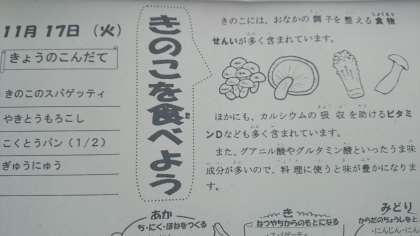 11月17日（火）
きょうのこんだて
きのこのスパゲッティ
やきとうもろこし
こくとうパン（1/2）
ぎゅうにゅう
きのこを食べよう
きのこには、おなかの調子を整える食物
せんいが多く含まれています。
ほかにも、カルシウムの吸収を助けるビタミ
ンDなども多く含まれています。
また、グアニル酸やグルタミン酸といったうま味
成分が多いので、料理に使うと味が豊かになりま
す。
あか
ち・にく・ほねをつくる
き
ねつやちからのもとになる
みどり
からだのちょうしを
・にんじん